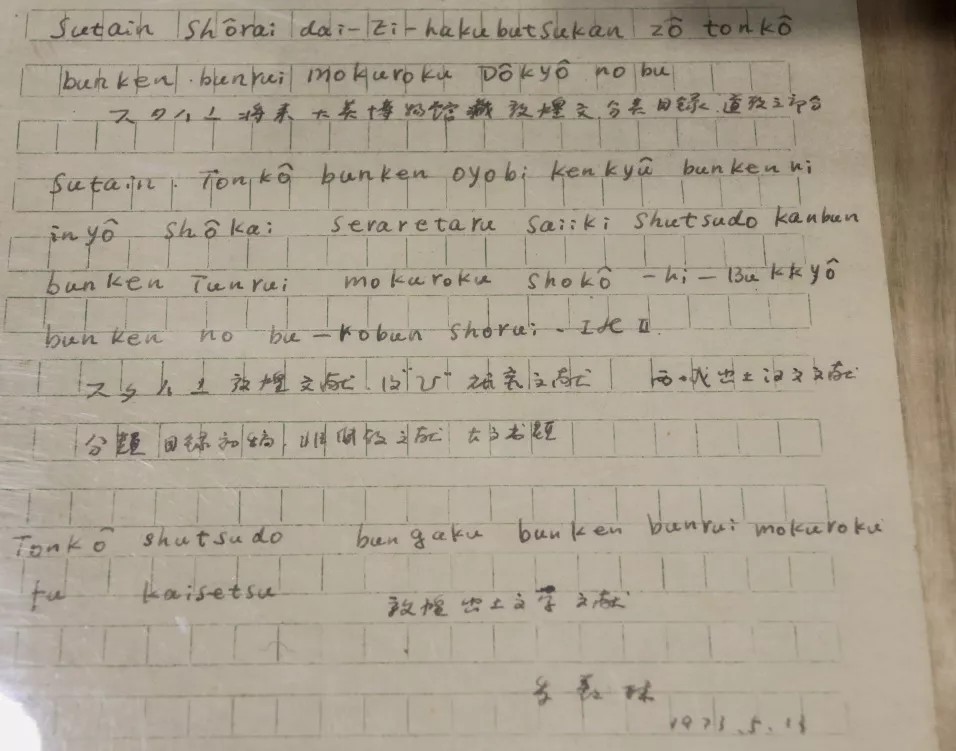 Sutain Shôrai dai-Zi-hakubutsukan zô tonkô
bunken bunrui mokuroku Dôkyô no bu
スタイン将来大英博物館藏敦煌文分类目録、道教之部分
Sutain. Tonkô bunken oyobi kenkyû bunken ni
inyô shôkai seraretaru Saiiki Shutsudo kanbun
bunken Tunrui mokuroku Shokô -hi- Bukkyô
bunken no bu -Kobun Shorui-
スタイン敦煌文献 及び 研究文献 西域出土汉文文献
分题目録初稿, 非佛教文献 古文书题
Tonkô shutsudo bungaku bunken bunrui mokuroku
fu kaisetsu
敦煌出土文学文献
1973.5.13